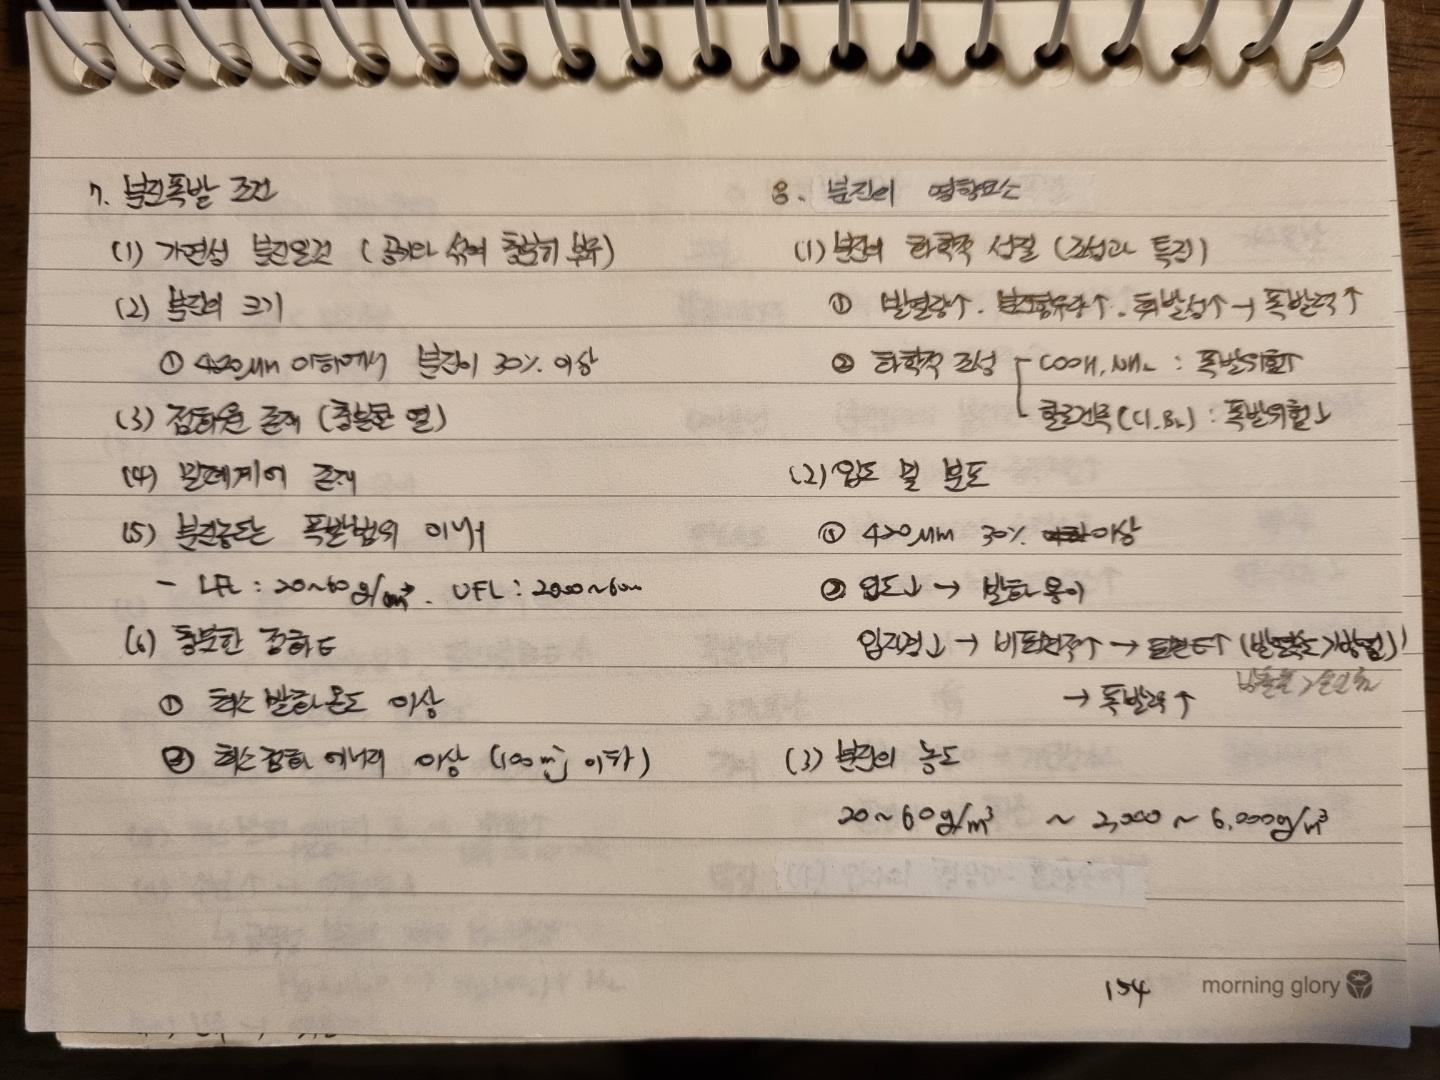 7. 분진폭발 조건
(1) 가연성 분진운건 (공기와 섞여 충분히 부유)
(2) 분진의 크기
① 420μm 이하에서 분진이 30% 이상
(3) 점화원 존재 (충분한 열)
(4) 밀폐계에 존재
(5) 분진농도는 폭발범위 이내
- LFL : 20~60g/m³. UFL : 2000~6000
(6) 충분한 점화E
① 최소 발화온도 이상
② 최소점화 에너지 이상 (100mj 이하)
8. 분진의 영향요소
(1) 분진의 화학적 성질 (조성과 특징)
① 발열량↑. 분진함유량↑. 휘발성↑ → 폭발력↑
② 화학적 조성 COOH, NH₂ : 폭발위험↑
할로겐족 (Cl.Br) : 폭발위험↓
(2) 입도 및 분포
① 420μm 30% 이상
② 입도↓ → 발화용이
입자경↓ → 비표면적↑ → 표면E↑ (발열속도>방열)
→ 폭발력↑
(3) 분진의 농도
20~60g/m³ ~ 2,000 ~ 6,000g/m³
154
morning glory